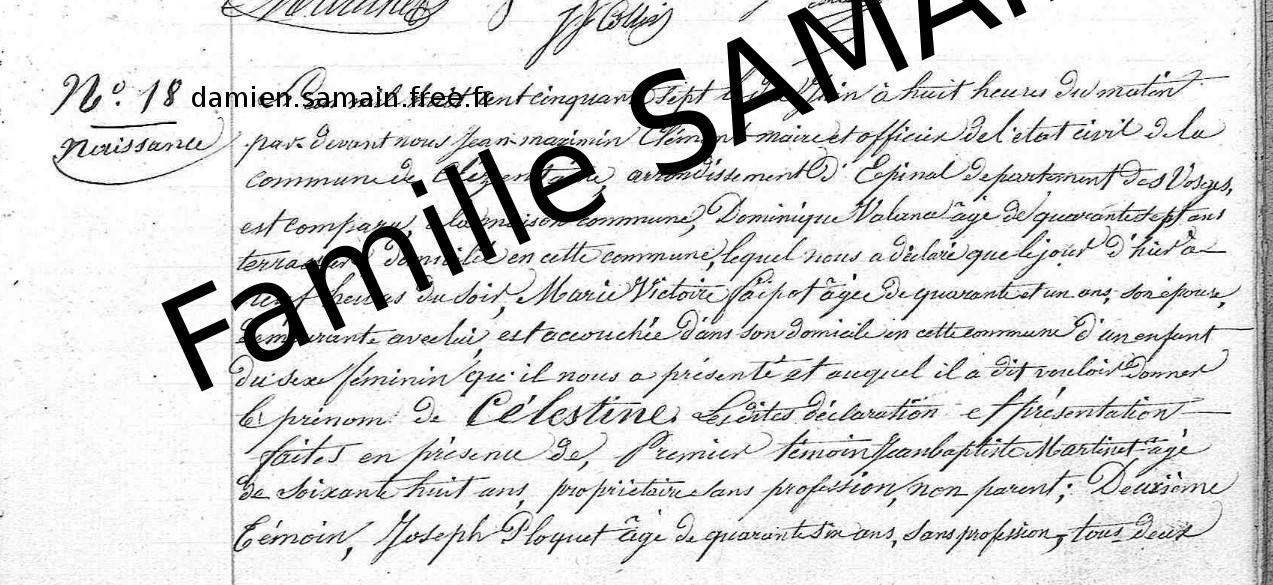 J J Collin
N.° 18
naissance
damien.samain.free.fr
Famille SAMAIN
cent cinquante sept juin à huit heures du matin
par devant nous Jean maximin Clément maire et officier de l'état civil de la
commune de arrondissement d'Epinal departement des Vosges,
est comparu, à la maison commune, Dominique Valance âgé de quarante sept ans
terrassier domicilié en cette commune, lequel nous a déclaré que le jour d'hier à
neuf heures du soir, Marie Victoire âgée de quarante et un ans, son épouse,
demeurante avec lui, est accouchée dans son domicile en cette commune d'un enfant
du sexe féminin qu'il nous a présenté et auquel il a dit vouloir donner
le prénom de Célestine. Lesdites déclaration et présentation
faites en présence de, Premier témoin Jean baptiste Martinet âgé
de soixante huit ans, propriétaire sans profession, non parent; Deuxième
Témoin, Joseph Ploquet âgé de quarante six ans, sans profession, tous deux